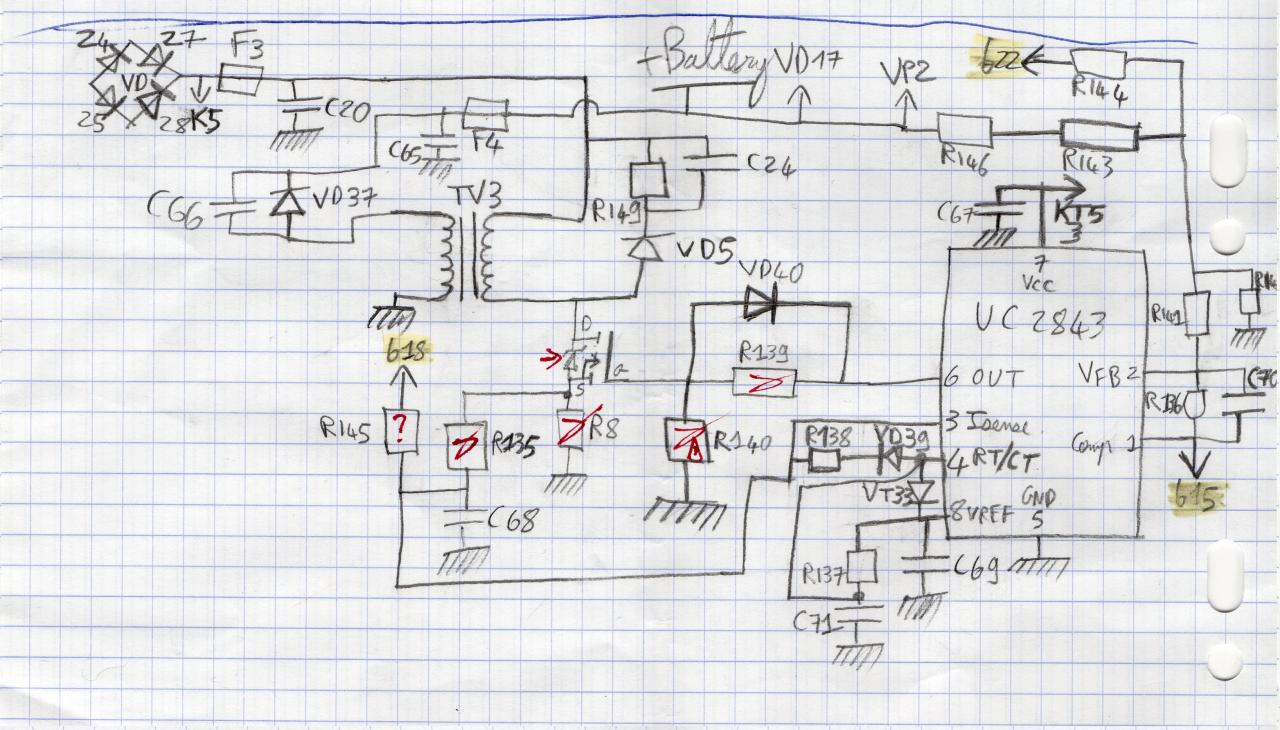 24 27
F3
VD
25 28 K5
C20
+Battery VD17
VP2
622
R144
C65 F4
R146 R143
C24
C66 VD37
TV3
R149
C67
KT5
3
VD5
VD40
7
Vcc
UC 2843
R141
618
D
R139
G
S
6 OUT VFB 2
R136
R145 ? R135 R8
R140
3 Isense
R138 VD39
Comp 1
4 RT/CT
VT33
GND
8 VREF 5
615
C68
R137
C69
C71